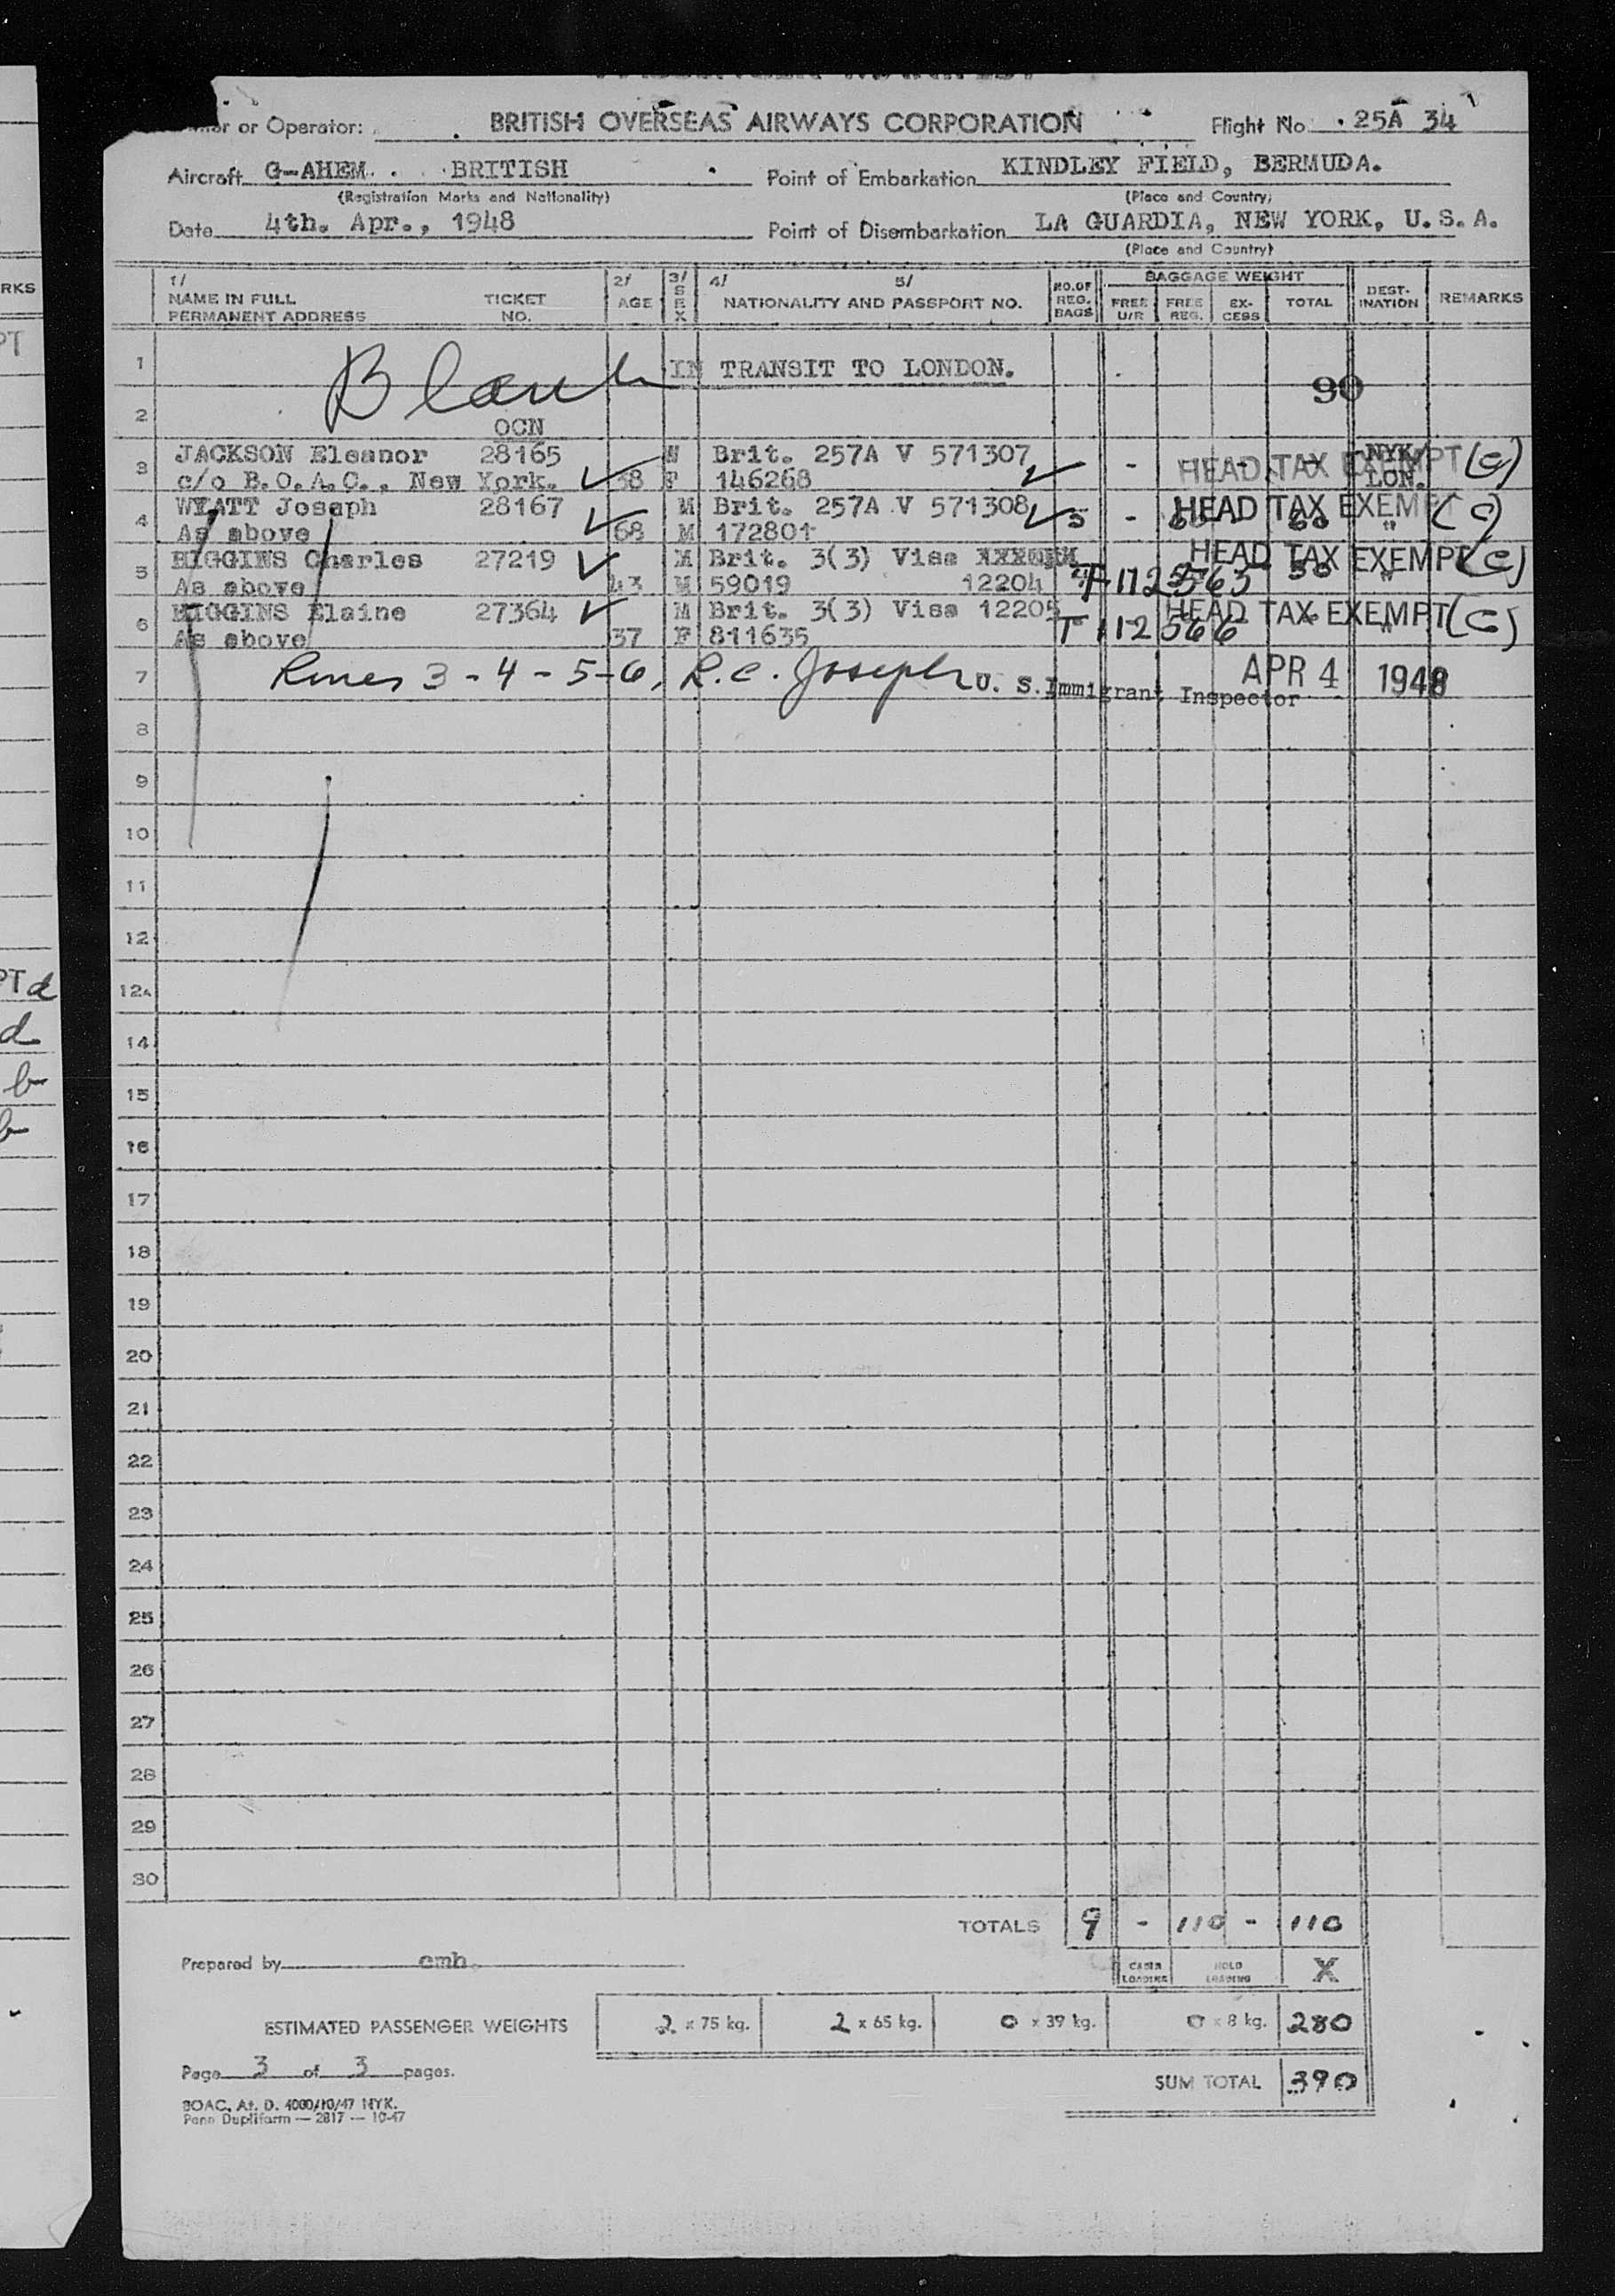 or Operator: BRITISH OVERSEAS AIRWAYS CORPORATION Flight No. 25A 34
Aircraft G-AHEM. BRITISH Point of Embarkation KINDLEY FIELD, BERMUDA.
(Registration Marks and Nationality) (Place and Country)
Date 4th. Apr., 1948 Point of Disembarkation LA GUARDIA, NEW YORK, U.S.A.
(Place and Country)
RKS
1/ NAME IN FULL PERMANENT ADDRESS TICKET NO. 2/ AGE 3/ SEX 4/ 5/ NATIONALITY AND PASSPORT NO. NO. OF REG. BAGS BAGGAGE WEIGHT FREE U/R FREE REG. EX-CESS TOTAL DEST-INATION REMARKS
1 Blank IN TRANSIT TO LONDON. 90
2
OCN
3 JACKSON Eleanor 28165 Brit. 257A V 571307 - HEAD TAX EXEMPT (c) NYK/
c/o B.O.A.C., New York. 38 F 146268 LON.
4 WYATT Joseph 28167 M Brit. 257A V 571308 5 - HEAD TAX EXEMPT (c)
As above 68 M 172801
5 HIGGINS Charles 27219 M Brit. 3(3) Visa HEAD TAX EXEMPT (c)
As above 43 M 59019 12204
6 HIGGINS Elaine 27364 M Brit. 3(3) Visa 12205 HEAD TAX EXEMPT (c)
As above 37 F 811635 T 112566
7 Lines 3-4-5-6, R.C. Joseph U. S. Immigrant Inspector APR 4 1948
8
9
10
11
12
12A
14
15
16
17
18
19
20
21
22
23
24
25
26
27
28
29
30
TOTALS 9 - 110 - 110
Prepared by cmh. CABIN LOADING HOLD LOADING X
ESTIMATED PASSENGER WEIGHTS 2 x 75 kg. 2 x 65 kg. 0 x 39 kg. 0 x 8 kg. 280
Page 3 of 3 pages. SUM TOTAL 390
BOAC, At. D. 4000/10/47 NYK.
Penn Dupliform — 2817 — 10-47